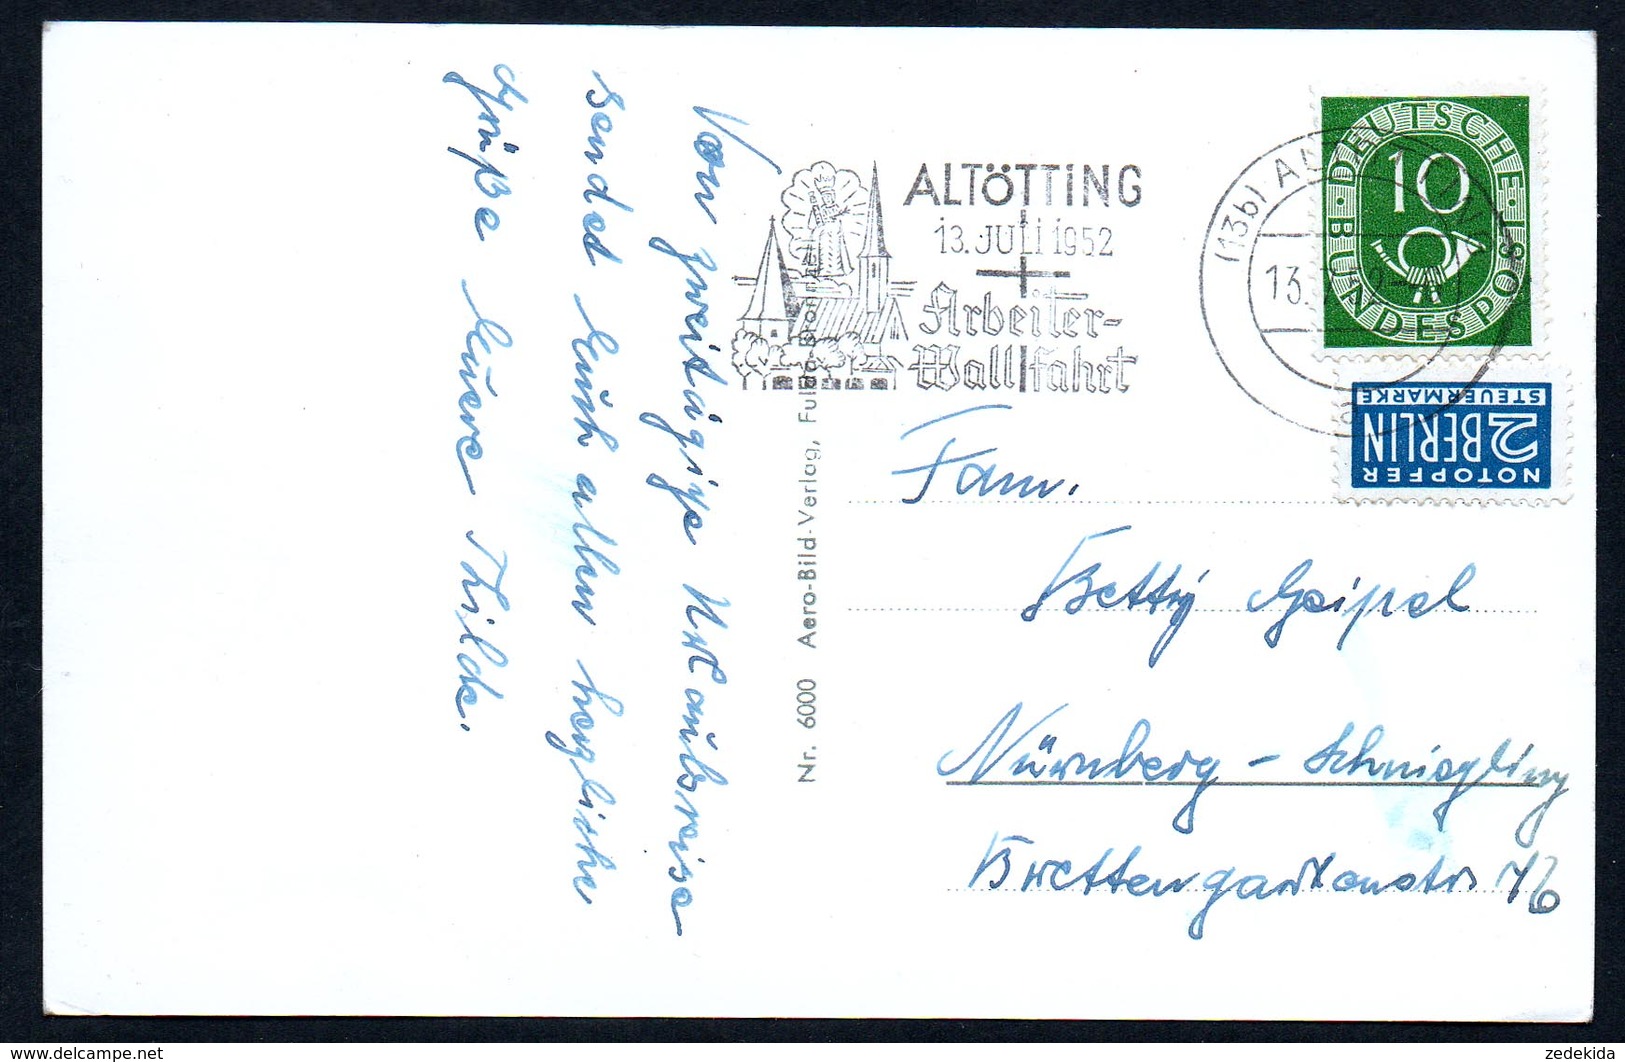 Von zweitägige Urlaubsreise
sendet Euch allen herzliche
Grüße Eure Thilde.
Nr. 6000 Aero-Bild-Verlag,
ALTÖTTING
13. JULI 1952
Arbeiter-
Wallfahrt
DEUTSCHE BUNDESPOST
10
NOTOPFER
2 BERLIN
STEUERMARKE
Fam.
Betty Geipel
Nürnberg - Schniegling
Brettengartenstr
zedekida